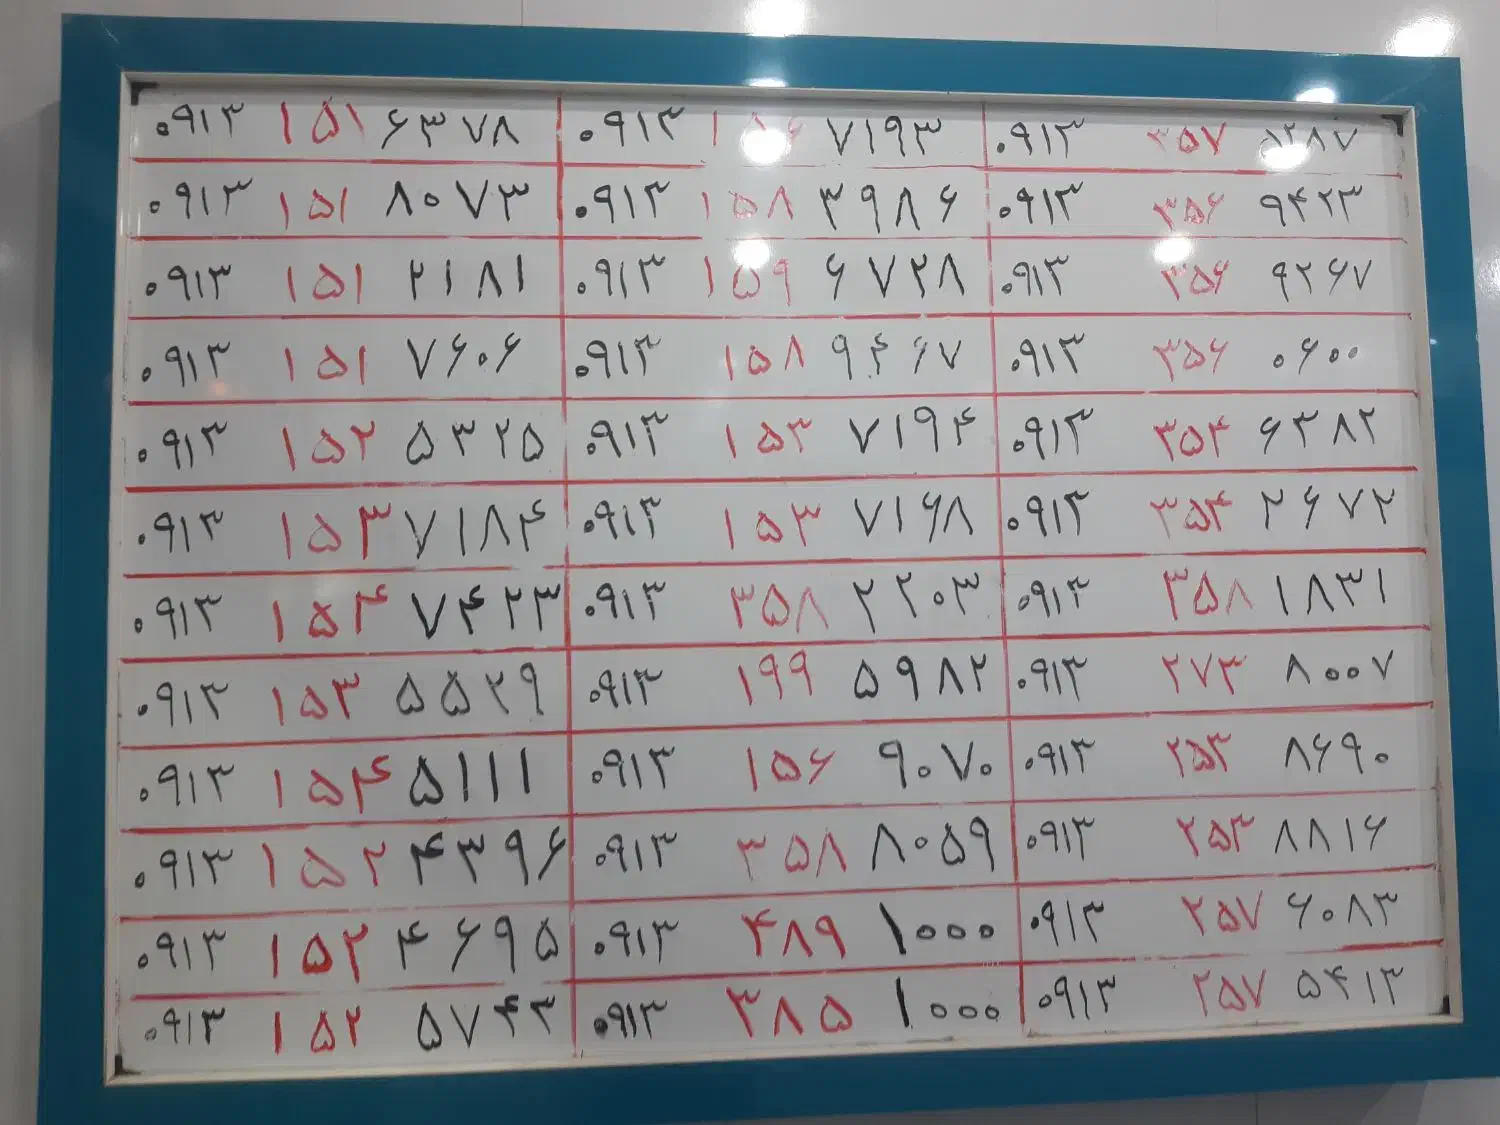 ۰۹۱۳ ۱۵۱ ۶۳۷۸ ۰۹۱۳ ۱۵۶ ۷۱۹۳ ۰۹۱۳ ۳۵۷ ۸۲۸۷
۰۹۱۳ ۱۵۱ ۸۰۷۳ ۰۹۱۳ ۱۵۸ ۳۹۸۶ ۰۹۱۳ ۳۵۶ ۹۴۲۳
۰۹۱۳ ۱۵۱ ۲۱۸۱ ۰۹۱۳ ۱۵۹ ۶۷۲۸ ۰۹۱۳ ۳۵۶ ۹۲۶۷
۰۹۱۳ ۱۵۱ ۷۶۰۶ ۰۹۱۳ ۱۵۸ ۹۴۶۷ ۰۹۱۳ ۳۵۶ ۰۶۰۰
۰۹۱۳ ۱۵۲ ۵۳۲۵ ۰۹۱۳ ۱۵۳ ۷۱۹۴ ۰۹۱۳ ۳۵۴ ۶۳۸۲
۰۹۱۳ ۱۵۳ ۷۱۸۴ ۰۹۱۳ ۱۵۳ ۷۱۶۸ ۰۹۱۳ ۳۵۴ ۲۶۷۲
۰۹۱۳ ۱۵۴ ۷۴۲۳ ۰۹۱۳ ۳۵۸ ۲۲۰۳ ۰۹۱۳ ۳۵۸ ۱۸۳۱
۰۹۱۳ ۱۵۳ ۵۵۲۹ ۰۹۱۳ ۱۹۹ ۵۹۸۲ ۰۹۱۳ ۲۷۳ ۸۰۰۷
۰۹۱۳ ۱۵۴ ۵۱۱۱ ۰۹۱۳ ۱۵۶ ۹۰۷۰ ۰۹۱۳ ۲۵۳ ۸۶۹۰
۰۹۱۳ ۱۵۲ ۴۳۹۶ ۰۹۱۳ ۳۵۸ ۸۰۵۹ ۰۹۱۳ ۲۵۳ ۸۸۱۶
۰۹۱۳ ۱۵۲ ۴۶۹۵ ۰۹۱۳ ۴۸۹ ۱۰۰۰ ۰۹۱۳ ۲۵۷ ۶۰۸۳
۰۹۱۳ ۱۵۲ ۵۷۴۳ ۰۹۱۳ ۳۸۵ ۱۰۰۰ ۰۹۱۳ ۲۵۷ ۵۴۱۳